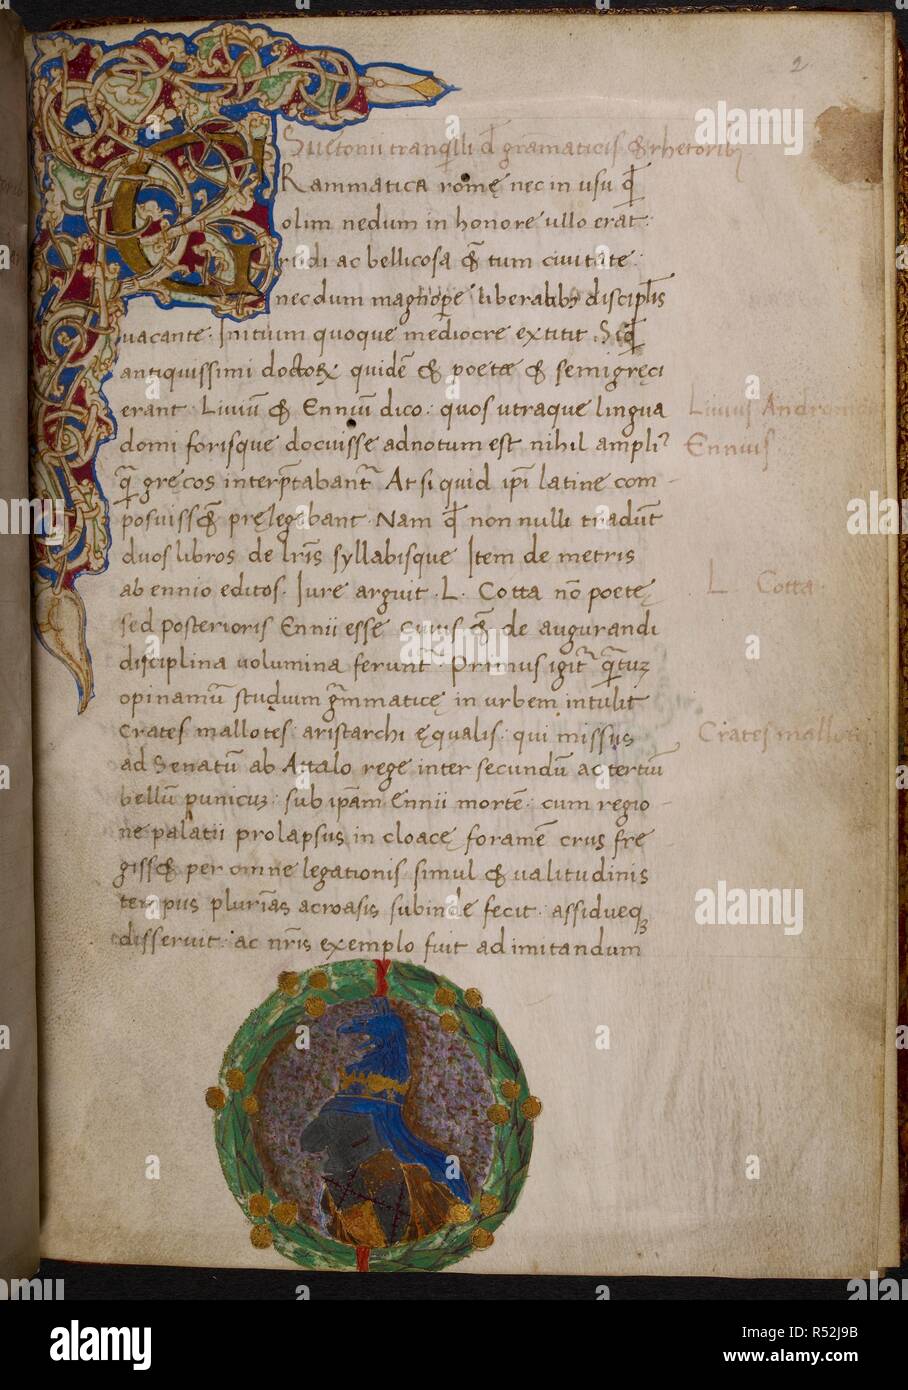 2
Suetonii tranq̄lli d̄ gram̄aticis & rhetoribȝ
GRammatica romę nec in usu q̄
olim nedum in honore ullo erat·
rudi ac bellicosa & tum ciuitate·
nec dum magnopere liberalibȝ discipl̄is
uacante· Initium quoque mediocre extitit· Siq̄
antiquissimi doctoꝝ quidē & poetae & semigręci
erant· Liuiū & Enniū dico· quos utraque lingua
domi forisque docuisse adnotum est nihil ampliꝰ
q̄ gręcos interp̄tabant᷑ At si quid ip̄i latine com-
posuiss& pręlegebant· Nam q̄ non nulli tradūt
duos libros de lr̄is syllabisque Item de metris
ab ennio editos· Iure arguit· L· Cotta nō poetę
sed posterioris Ennii esse cuius & de augurandi
disciplina uolumina ferunt᷑· Primus igit᷑ q̄tuȝ
opinamū studium gr̄mmaticę in urbem intulit
Crates mallotes· aristarchi ęqualis· qui missus
ad Senatū ab Attalo rege inter secundū ac tertiū
bellū punicuȝ· sub ipsam Ennii mortē· cum regio-
ne palatii prolapsus in cloacę foramē crus fre
giss& per omne legationis simul & ualitudinis
tempus plurias acroasis subinde fecit· assidueqȝ
disseruit· ac nr̄is exemplo fuit ad imitandum
Liuius Andronicus
Ennius
L· Cotta·
Crates mallotes
alamy
Image ID: R52J9B
www.alamy.com